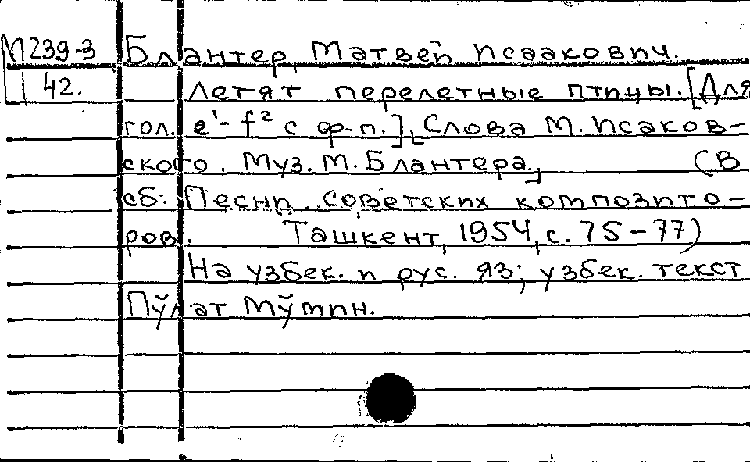 М239-3 Блантер, Матвей Исаакович.
42. Летят перелетные птицы. [Для
гол. e¹-f² с ф-п.], [Слова М. Исаков-
ского. Муз. М. Блантера], (В
сб: Песни советских композито-
ров. Ташкент, 1954, с. 75-77)
На узбек. и рус. яз; узбек. текст
Пўлат Мўмин.